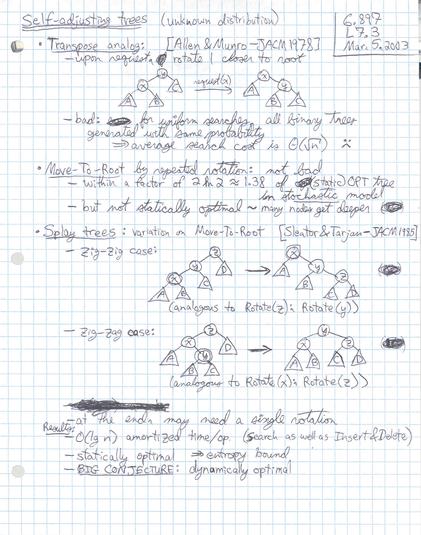 Self-adjusting trees (unknown distribution)
6.897
L7.3
Mar. 5, 2003
• Transpose analog: [Allen & Munro - JACM 1978]
- upon request, rotate 1 closer to root
y
x
A B C
request(x)
x
y
A B C
- bad: for uniform searches, all binary trees
generated with same probability
⇒ average search cost is Θ(√n) :(
• Move-To-Root by repeated rotation: not bad
- within a factor of 2 ln 2 ≈ 1.38 of (static) OPT tree
in stochastic model
- but not statically optimal ~ many nodes get deeper
• Splay trees: variation on Move-To-Root [Sleator & Tarjan - JACM 1985]
- Zig-zig case:
z
y D
x C
A B
→
x
A y
B z
C D
(analogous to Rotate(z); Rotate(y))
- Zig-zag case:
z
x D
A y
B C
→
y
x z
A B C D
(analogous to Rotate(x); Rotate(z))
- at the end, may need a single rotation
Results:
- O(lg n) amortized time/op. (Search as well as Insert & Delete)
- statically optimal ⇒ entropy bound
- BIG CONJECTURE: dynamically optimal